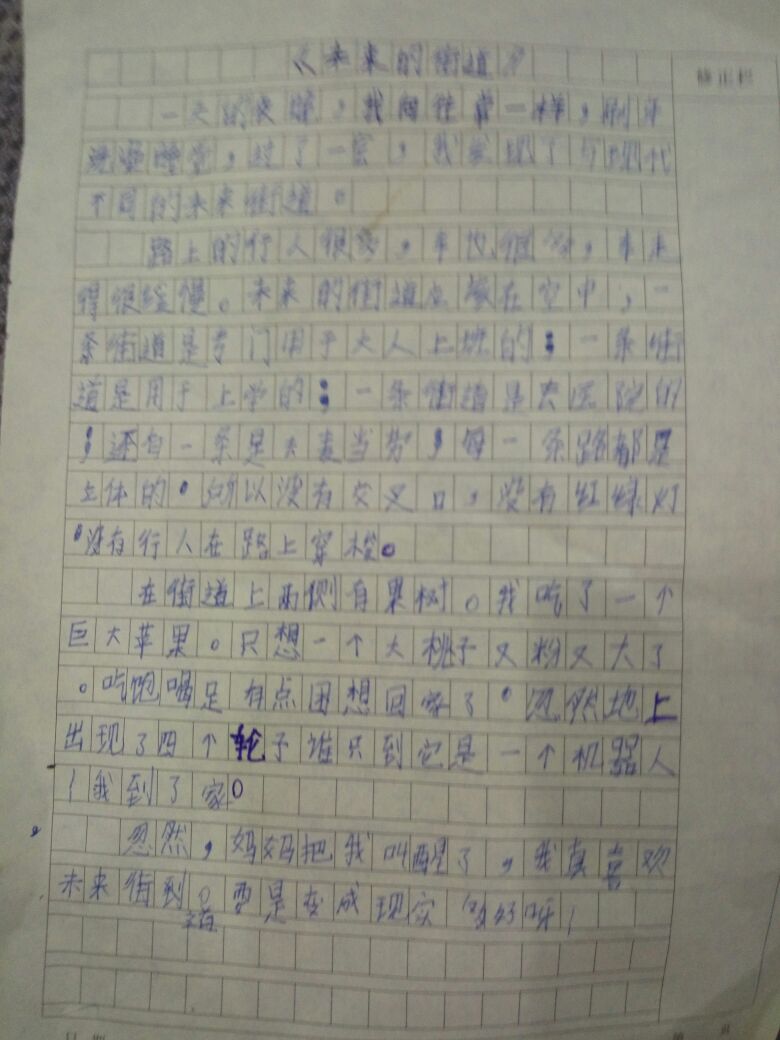 《未来的街道》
一天的夜晚，我向往常一样，刷牙
洗澡睡觉，过了一会，我发现了与现代
不同的未来街道。
路上的行人很多，车也很多，车走
得很缓慢。未来的街道在空中，一
条街道是专门用于大人上班的；一条街
道是用于上学的；一条街道是去医院的
；还有一条是去麦当劳；每一条路都是
立体的。所以没有交叉口，没有红绿灯
。没有行人在路上穿梭。
在街道上两侧有果树。我吃了一个
巨大苹果。只想一个大桃子又粉又大了
。吃饱喝足有点困想回家了。忽然地上
出现了四个轮子谁只到它是一个机器人
！我到了家。
忽然，妈妈把我叫醒了，我真喜欢
未来街到。要是变成现实多好呀！
道
修正栏